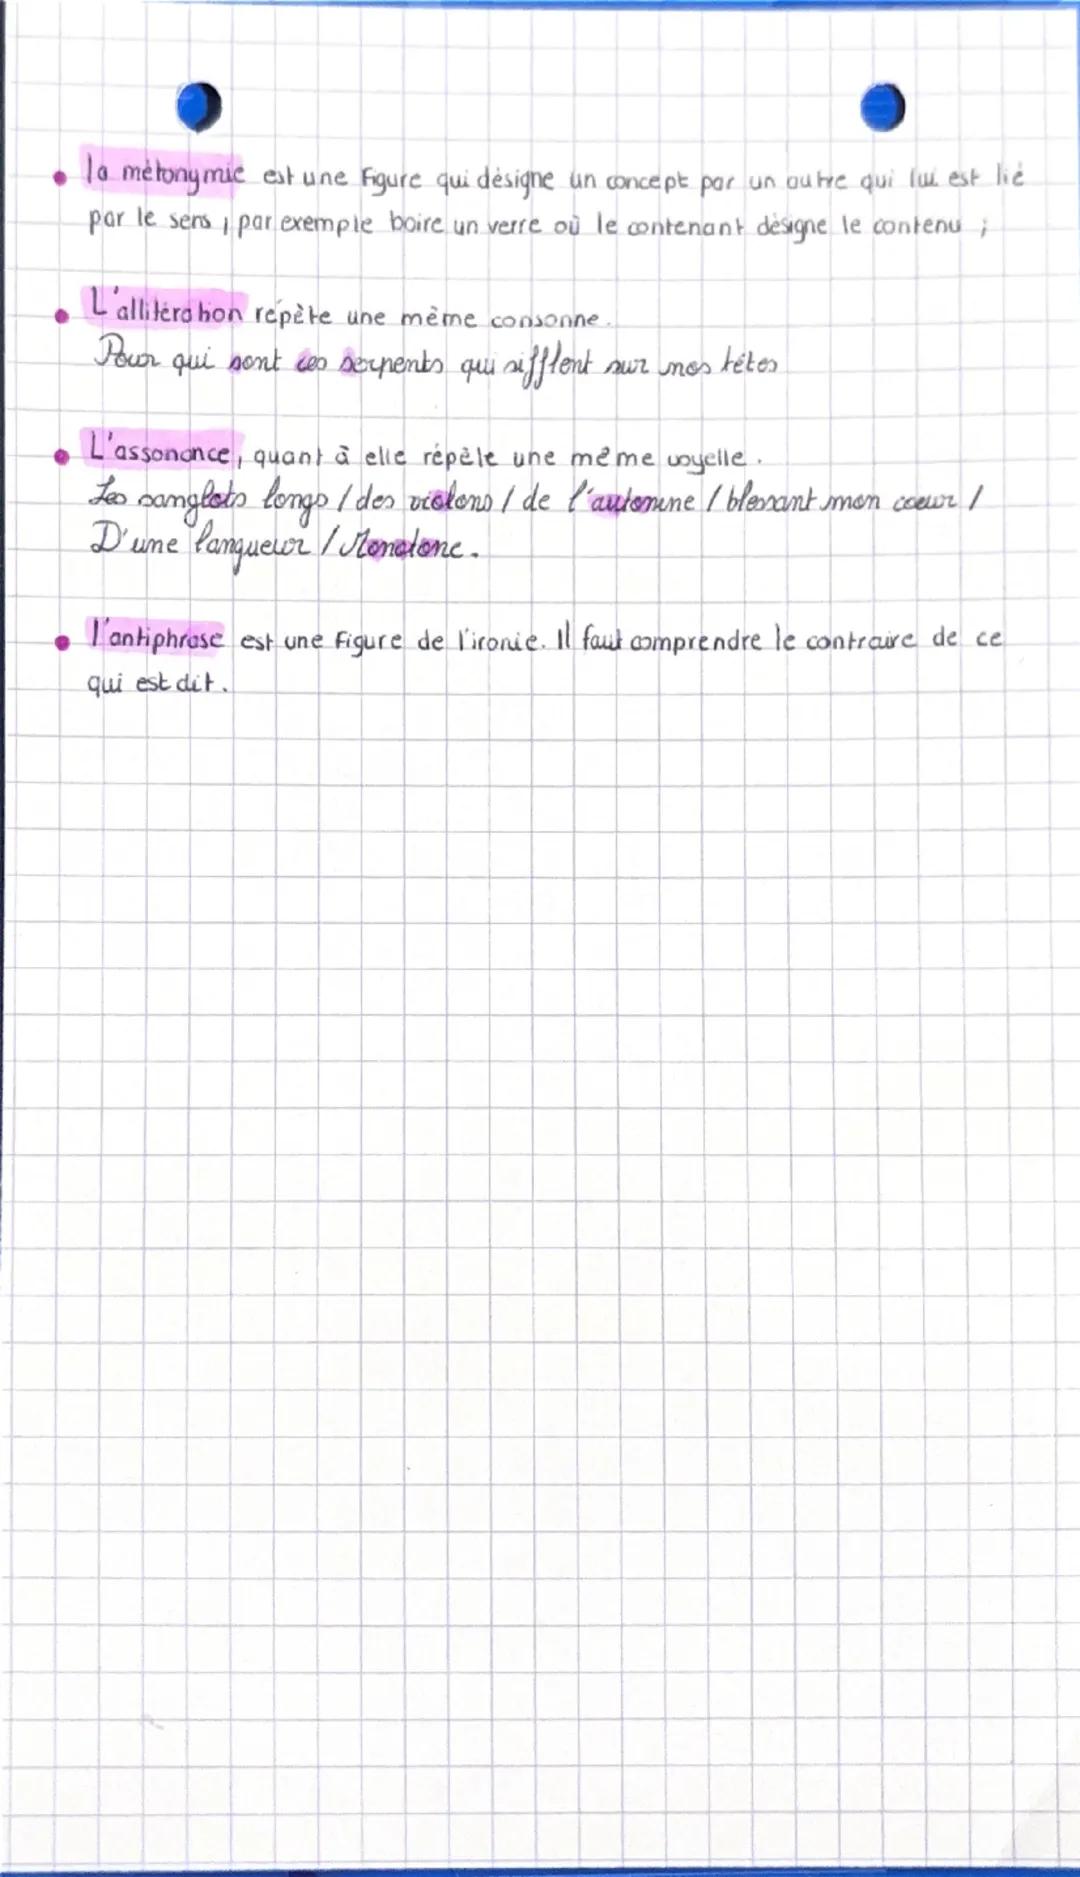 la métonymie est une Figure qui désigne un concept par un autre qui lui est lié
par le sens, par exemple boire un verre où le contenant désigne le contenu ;
L'allitération répète une même consonne.
Pour qui sont ces serpents qui sifflent sur mes têtes
L'assonance, quant à elle répète une même voyelle.
Les sanglots longs / des violons / de l'automne / blessant mon coeur /
D'une langueur / Monotone.
l'antiphrase est une Figure de l'ironie. Il faut comprendre le contraire de ce
qui est dit.